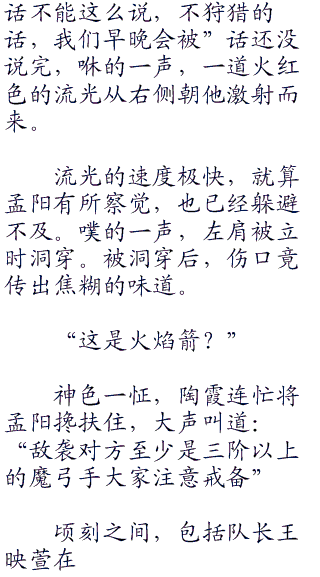 话不能这么说，不狩猎的
话，我们早晚会被”话还没
说完，咻的一声，一道火红
色的流光从右侧朝他激射而
来。
流光的速度极快，就算
孟阳有所察觉，也已经躲避
不及。噗的一声，左肩被立
时洞穿。被洞穿后，伤口竟
传出焦糊的味道。
“这是火焰箭？”
神色一怔，陶霞连忙将
孟阳搀扶住，大声叫道：
“敌袭对方至少是三阶以上
的魔弓手大家注意戒备”
顷刻之间，包括队长王
映萱在